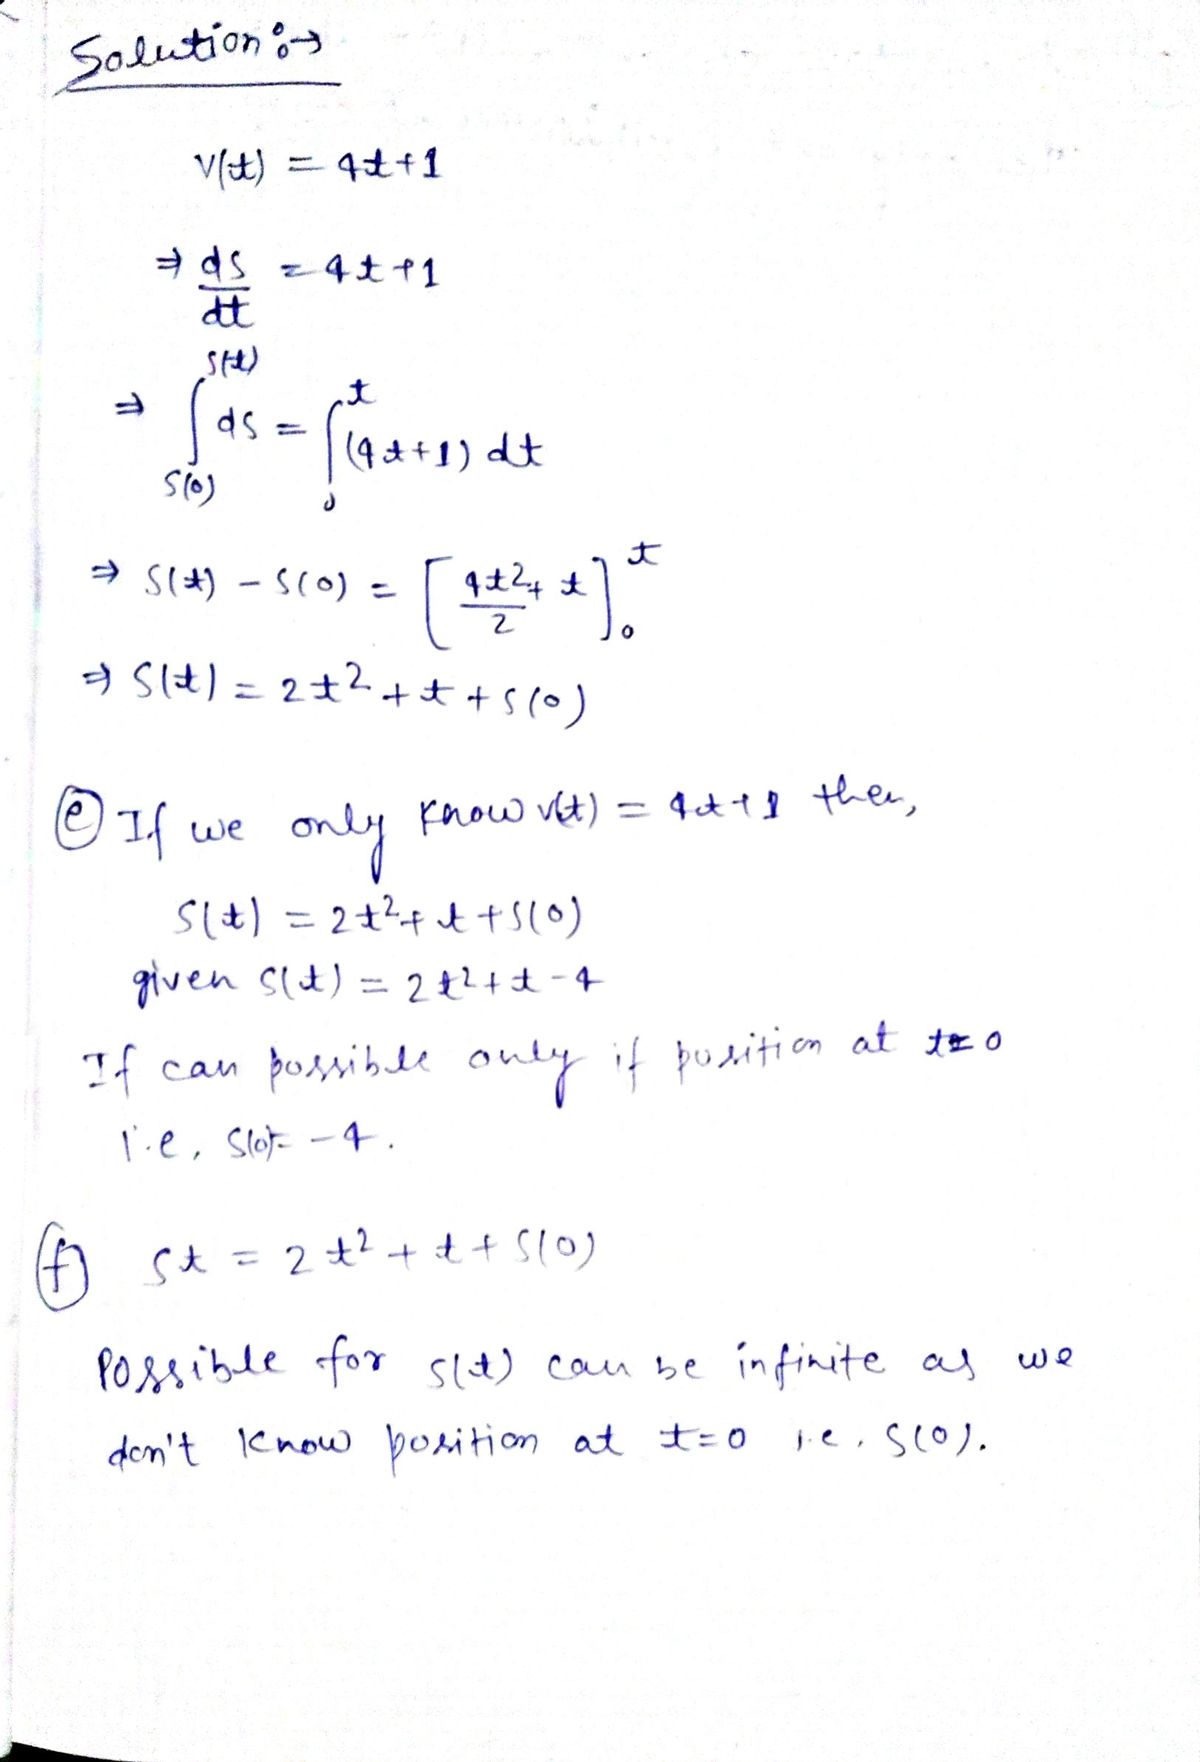 Solution :→
V(t) = 4t+1
⇒ ds/dt = 4t+1
⇒ ∫_{S(0)}^{S(t)} ds = ∫_0^t (4t+1) dt
⇒ S(t) - S(0) = [4t²/2 + t]_0^t
⇒ S(t) = 2t² + t + S(0)
(e) If we only know v(t) = 4t+1 then,
S(t) = 2t² + t + S(0)
given S(t) = 2t² + t - 4
If can possible only if position at t=0
i.e, S(0)= -4.
(f) St = 2t² + t + S(0)
Possible for s(t) can be infinite as we
don't know position at t=0 i.e, S(0).